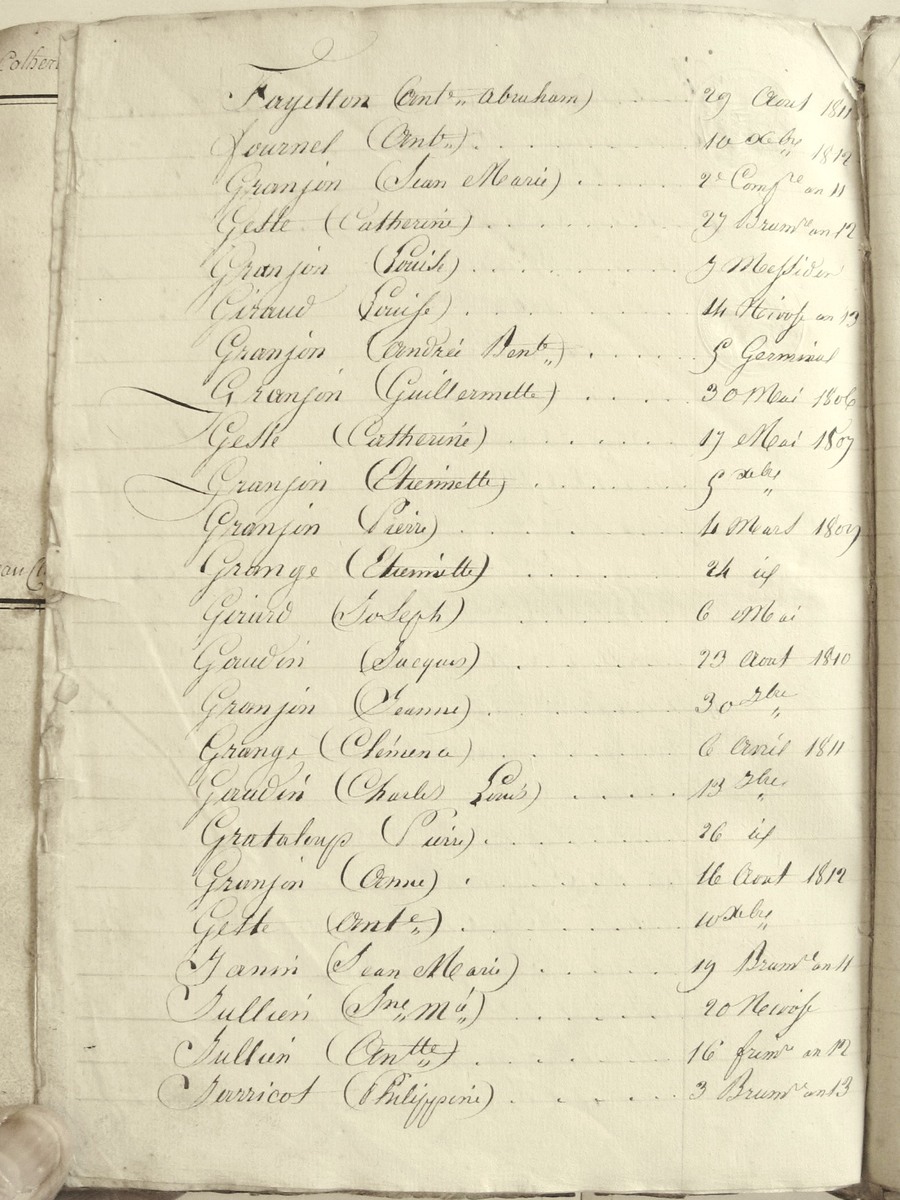 Cather
Fayetton (Ant.e Abraham) 29 Aout 1811
Journel (Ant.e) . . . . . . 10 Xbre 1812
Granjon (Jean Marie) . . . . . 2e Compre an 11
Geste (Catherine) . . . . . . 27 Brumre an 12
Granjon (Louise) . . . . . . 7 Messidor
Giraud (Louise) . . . . . . 14 Nivose an 13
Granjon (André Bent) . . . . 5 Germinal
Granjon (Guillermette) . . . . 30 Mai 1806
Geste (Catherine) . . . . . . 17 Mai 1807
Granjon (Etiennette) . . . . . 5 Xbre
Granjon (Pierre) . . . . . . 4 Mars 1809
Grange (Etiennette) . . . . . 24 id
Girard (Joseph) . . . . . 6 Mai
Gaudin (Jacques) . . . . . 23 Aout 1810
Granjon (Jeanne) . . . . . . 30 7bre
Grange (Clémence) . . . . . 6 Avril 1811
Gaudin (Charles Louis) . . . . 13 7bre
Grataloup (Pierre) . . . . . . 26 id
Granjon (Anne) . . . . . . 16 Aout 1812
Geste (Ant.e) . . . . . . 10 Xbre
Janin (Jean Marie) . . . . . 19 Brumre an 11
Jullien (Jne Mie) . . . . . 20 Nivose
Jullien (Antte) . . . . . . 16 frimre an 12
Jarricot (Philippine) . . . . . 3 Brumre an 13